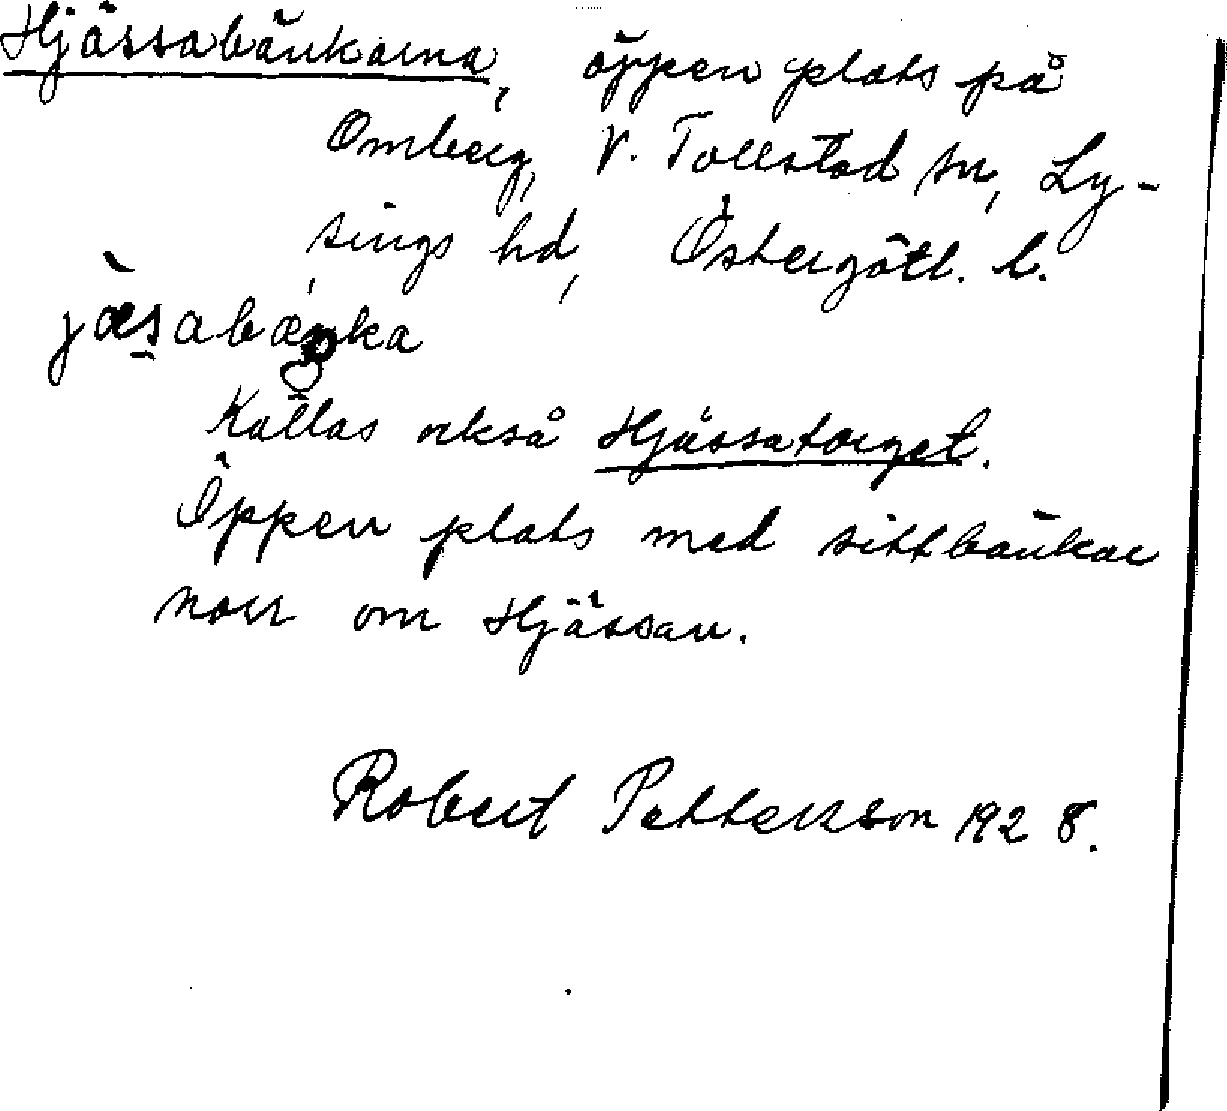 Hjässabänkarna, öppen plats på
Omberg, V. Tollstad sn, Ly-
sings hd, Östergötl. l.
jæ̀sabæŋka
Kallas också Hjässatorget.
Öppen plats med sittbänkar
norr om Hjässan.
Robert Pettersson 1928.